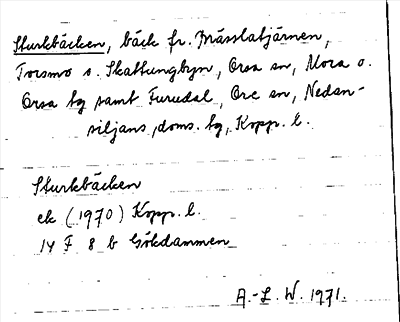 Sturkbäcken, bäck fr. Prässlatjärnen,
Torsmo o. Skattungbyn, Orsa sn, Mora o.
Orsa tg samt Furudal, Ore sn, Nedan-
siljans doms. tg, Kopp. l.
Sturkbäcken
ek (1970) Kopp. l.
14 F 8 b Gökdammen
A.-L. W. 1971.